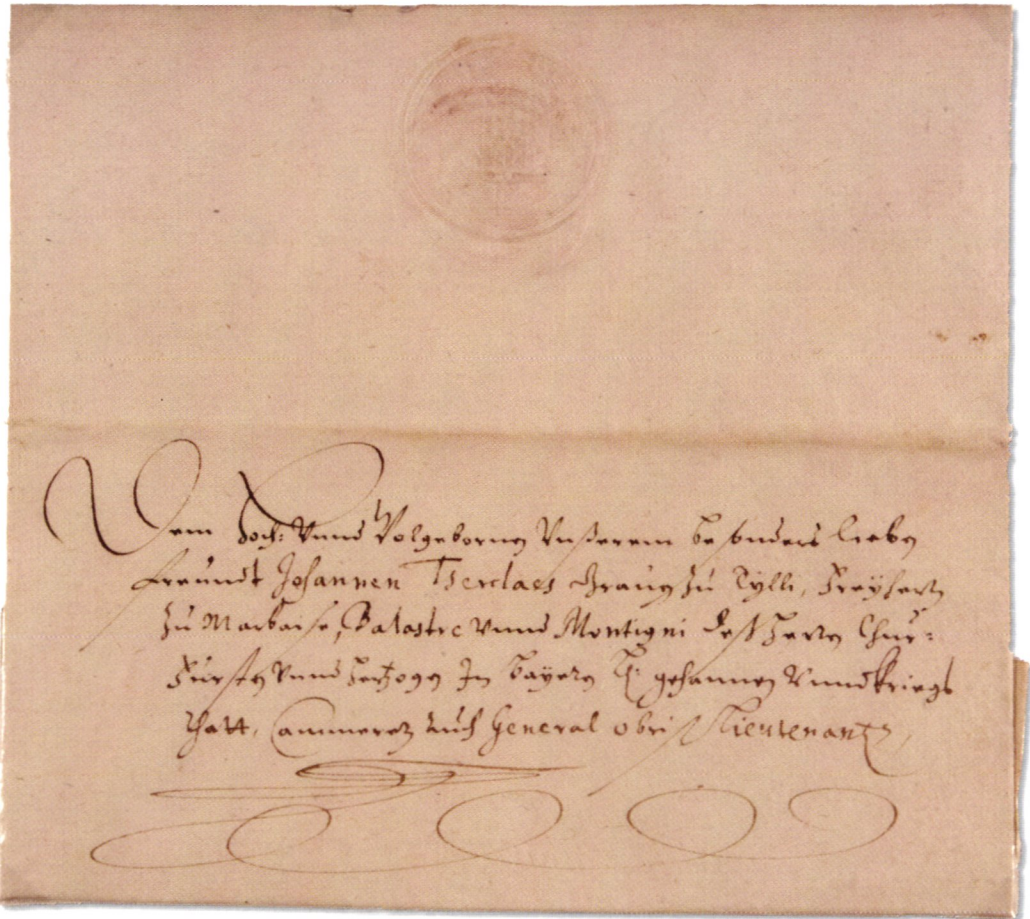 Dem Hoch: Vnnd Wolgebornen Vnßerem besonders lieben
freundt Johannen Tserclaes Grauen zu Tylli, Freyherrn
zu Marbaise, Balastre vnnd Montigni deß Herrn Chur=
Fürsten vnnd Hertzogen In Bayern gehaimen Vnnd kriegs
Rhatt, Cammerern auch General obrist Lieutenantn